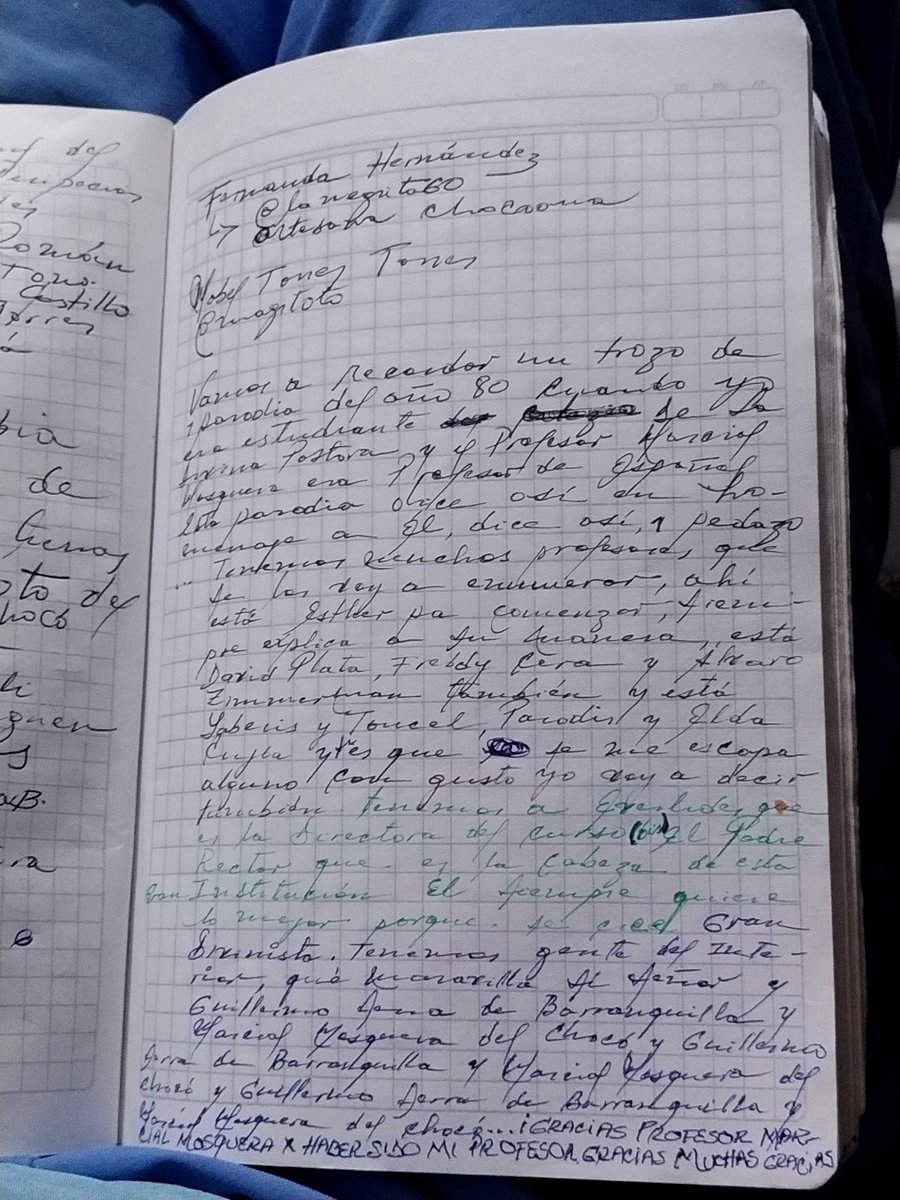 Fernanda Hernández
↳ @lanegrita60
Artesana chocoona
Torres Torres
Vamos a recordar un trozo de
parodia del año 80 cuando yo
era estudiante de la
Divina Pastora y el Profesor Marcial
Mosquera era Profesor de Español
Esta parodia dice así en ho-
menaje a Él, dice así, 1 pedazo
... Tenemos muchos profesores, que
se los voy a enumerar, ahí
está Esther pa comenzar, siem-
pre explica a su manera, está
David Plata, Freddy Cera y Alvaro
Zimmerman también y está
y Toncel, Parodis y Ilda
y es que se me escapa
alguno con gusto yo voy a decir
también tenemos a que
es la Directora del curso (6B) El Padre
Rector que es la cabeza de esta
Gran Institución El siempre quiere
lo mejor porque se cree Gran
Tenemos gente del Inte-
rior, qué maravilla Al Señor y
Guillermo Serra de Barranquilla y
Marcial Mosquera del Chocó y Guillermo
Serra de Barranquilla y Marcial Mosquera del
chocó y Guillermo Serra de Barranquilla y
Marcial Mosquera del chocó... ¡GRACIAS PROFESOR MAR-
CIAL MOSQUERA X HABER SIDO MI PROFESOR, GRACIAS MUCHAS GRACIAS
Román
Toro.
Castillo
de
to del
hocó
guen
B.
ra